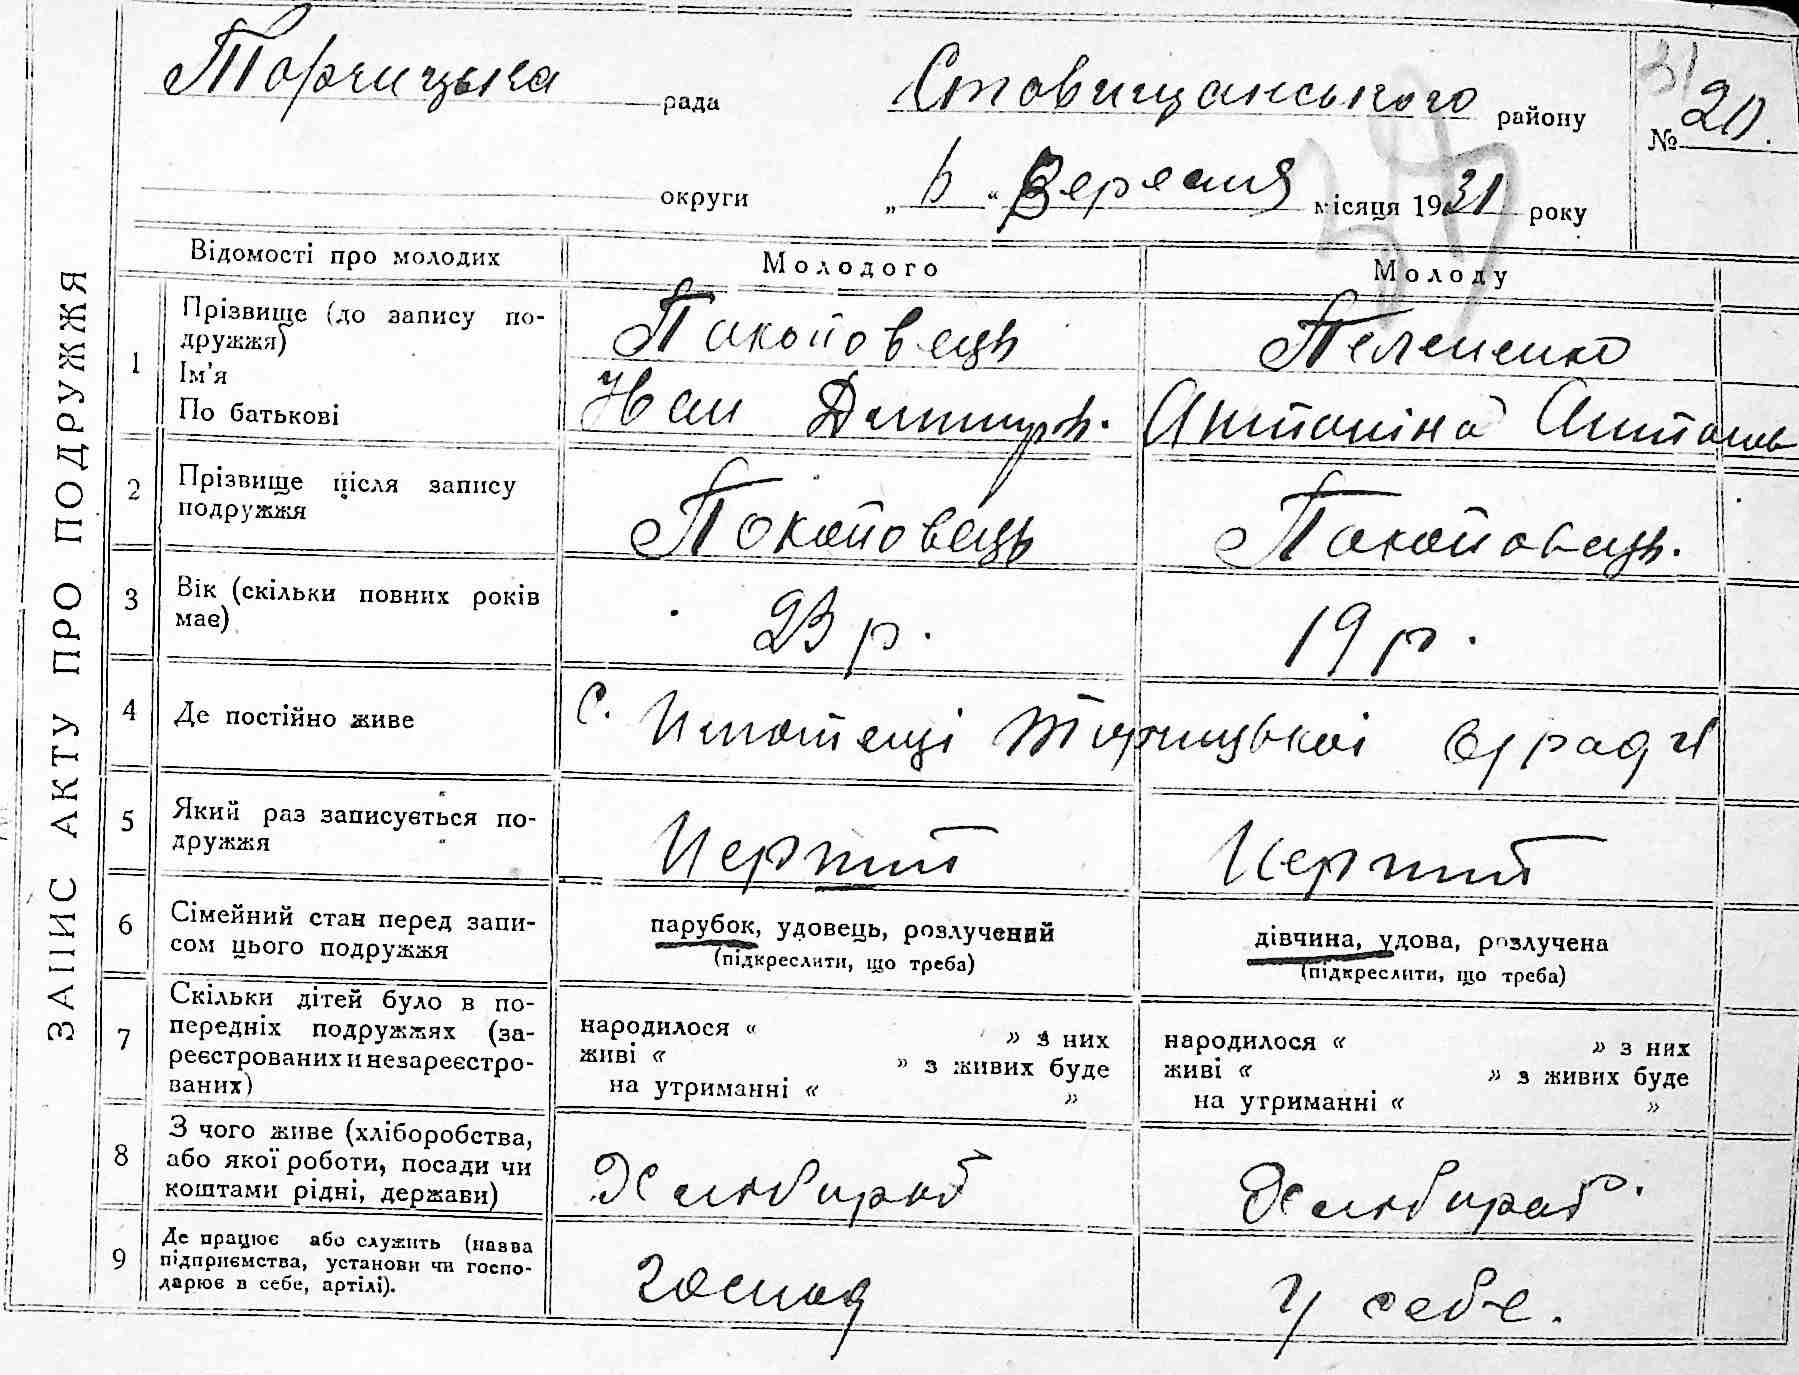 ЗАПИС АКТУ ПРО ПОДРУЖЖЯ
Торчицька рада Ставищанського району № 20.
31
округи „ 6 “ Вересня місяця 1931 року
Відомості про молодих Молодого Молоду
1 Прізвище (до запису по-
дружжя)
Ім'я
По батькові
Пакоповець
Иван Дмитр.
Антоніна Антонов
2 Прізвище після запису
подружжя
Покоповець Покоповець.
3 Вік (скільки повних років
має)
23 р. 19 р.
4 Де постійно живе
с.
5 Який раз записується по-
дружжя
Перший Перший
6 Сімейний стан перед запи-
сом цього подружжя
парубок, удовець, розлучений
(підкреслити, що треба)
дівчина, удова, розлучена
(підкреслити, що треба)
7 Скільки дітей було в по-
передніх подружжях (за-
реєстрованих и незареєстро-
ваних)
народилося « » з них
живі « » з живих буде
на утриманні « »
народилося « » з них
живі « » з живих буде
на утриманні « »
8 З чого живе (хліборобства,
або якої роботи, посади чи
коштами рідні, держави)
9 Де працює або служить (назва
підприємства, установи чи госпо-
дарює в себе, артілі).
господ у себе.